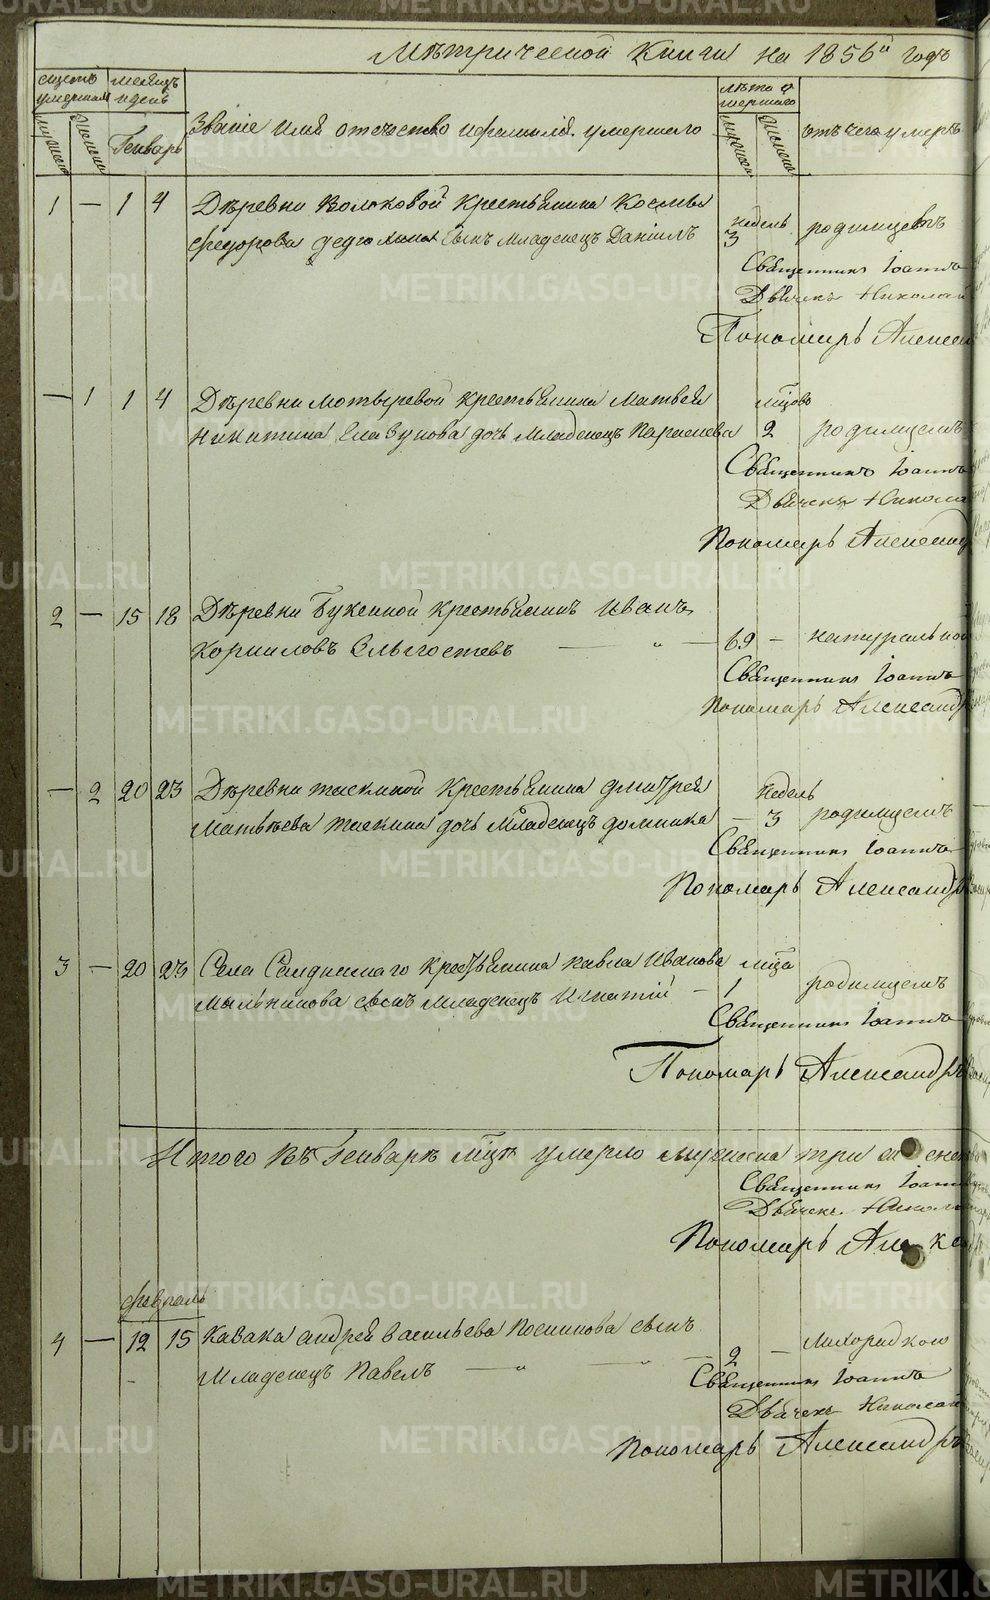 Мѣтрической Книги на 1856й годъ
счетъ умершихъ
мѣсяцъ и день
Званіе имя отечество и фамилія умершаго
лѣта умершаго
отъ чего умеръ
мужеска
женска
Генварь
мужеска
женска
1 — 1 4 Дѣревни Волоковой Крестьянина Космы
Федорова сынъ Младенецъ Даніилъ недель 3 родимцевъ
Священникъ Іоаннъ
Дьячекъ Николай
Пономарь Алексан
— 1 1 4 Дѣревни Мотыревой Крестьянина Матвея
Никитина Глазунова дочь Младенецъ Параскева мцовъ 2 родимцемъ
Священникъ Іоаннъ
Дьячекъ Никола
Пономарь Александ
2 — 15 18 Дѣревни Буксиной Крестьянинъ Иванъ
Корниловъ — „ — 69 — натуральной
Священникъ Іоаннъ
Пономарь Александръ
— 2 20 23 Дѣревни Крестьянина Дмитрея
Матвѣева дочь Младенецъ Домника — недель 3 родимцемъ
Священникъ Іоаннъ
Пономарь Александръ
3 — 20 23 Села Крестьянина Павла Иванова
Мыльникова сынъ Младенецъ Игнатій — мца 1 родимцемъ
Священникъ Іоаннъ
Пономарь Александръ
Итого въ Генварѣ мцѣ умерло мужеска три
Священникъ Іоанн
Дьячекъ Никол
Пономарь
февраль
4 — 12 15 Андрей Васильева Посникова сынъ
Младенецъ Павелъ — „ — „ — 2 — Лихорадкою
Священникъ Іоаннъ
Дьячекъ Николай
Пономарь Александръ
METRIKI.GASO-URAL.RU